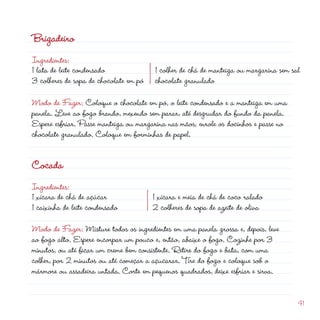 Brigadeiro
Ingredientes:
1 lata de leite condensado
3 colheres de sopa de chocolate em pó
1 colher de chá de manteiga ou margarina sem sal
chocolate granulado
Modo de Fazer: Coloque o chocolate em pó, o leite condensado e a manteiga em uma
panela. Leve ao fogo brando, mexendo sem parar, até desgrudar do fundo da panela.
Espere esfriar. Passe manteiga ou margarina nas mãos, enrole os docinhos e passe no
chocolate granulado. Coloque em forminhas de papel.
Cocada
Ingredientes:
1 xícara de chá de açúcar
1 caixinha de leite condensado
1 xícara e meia de chá de coco ralado
2 colheres de sopa de azeite de oliva
Modo de Fazer: Misture todos os ingredientes em uma panela grossa e, depois, leve
ao fogo alto. Espere encorpar um pouco e, então, abaixe o fogo. Cozinhe por 3
minutos, ou até ficar um creme bem consistente. Retire do fogo e bata, com uma
colher, por 2 minutos ou até começar a açucarar. Tire do fogo e coloque sob o
mármore ou assadeira untada. Corte em pequenos quadrados, deixe esfriar e sirva.
41